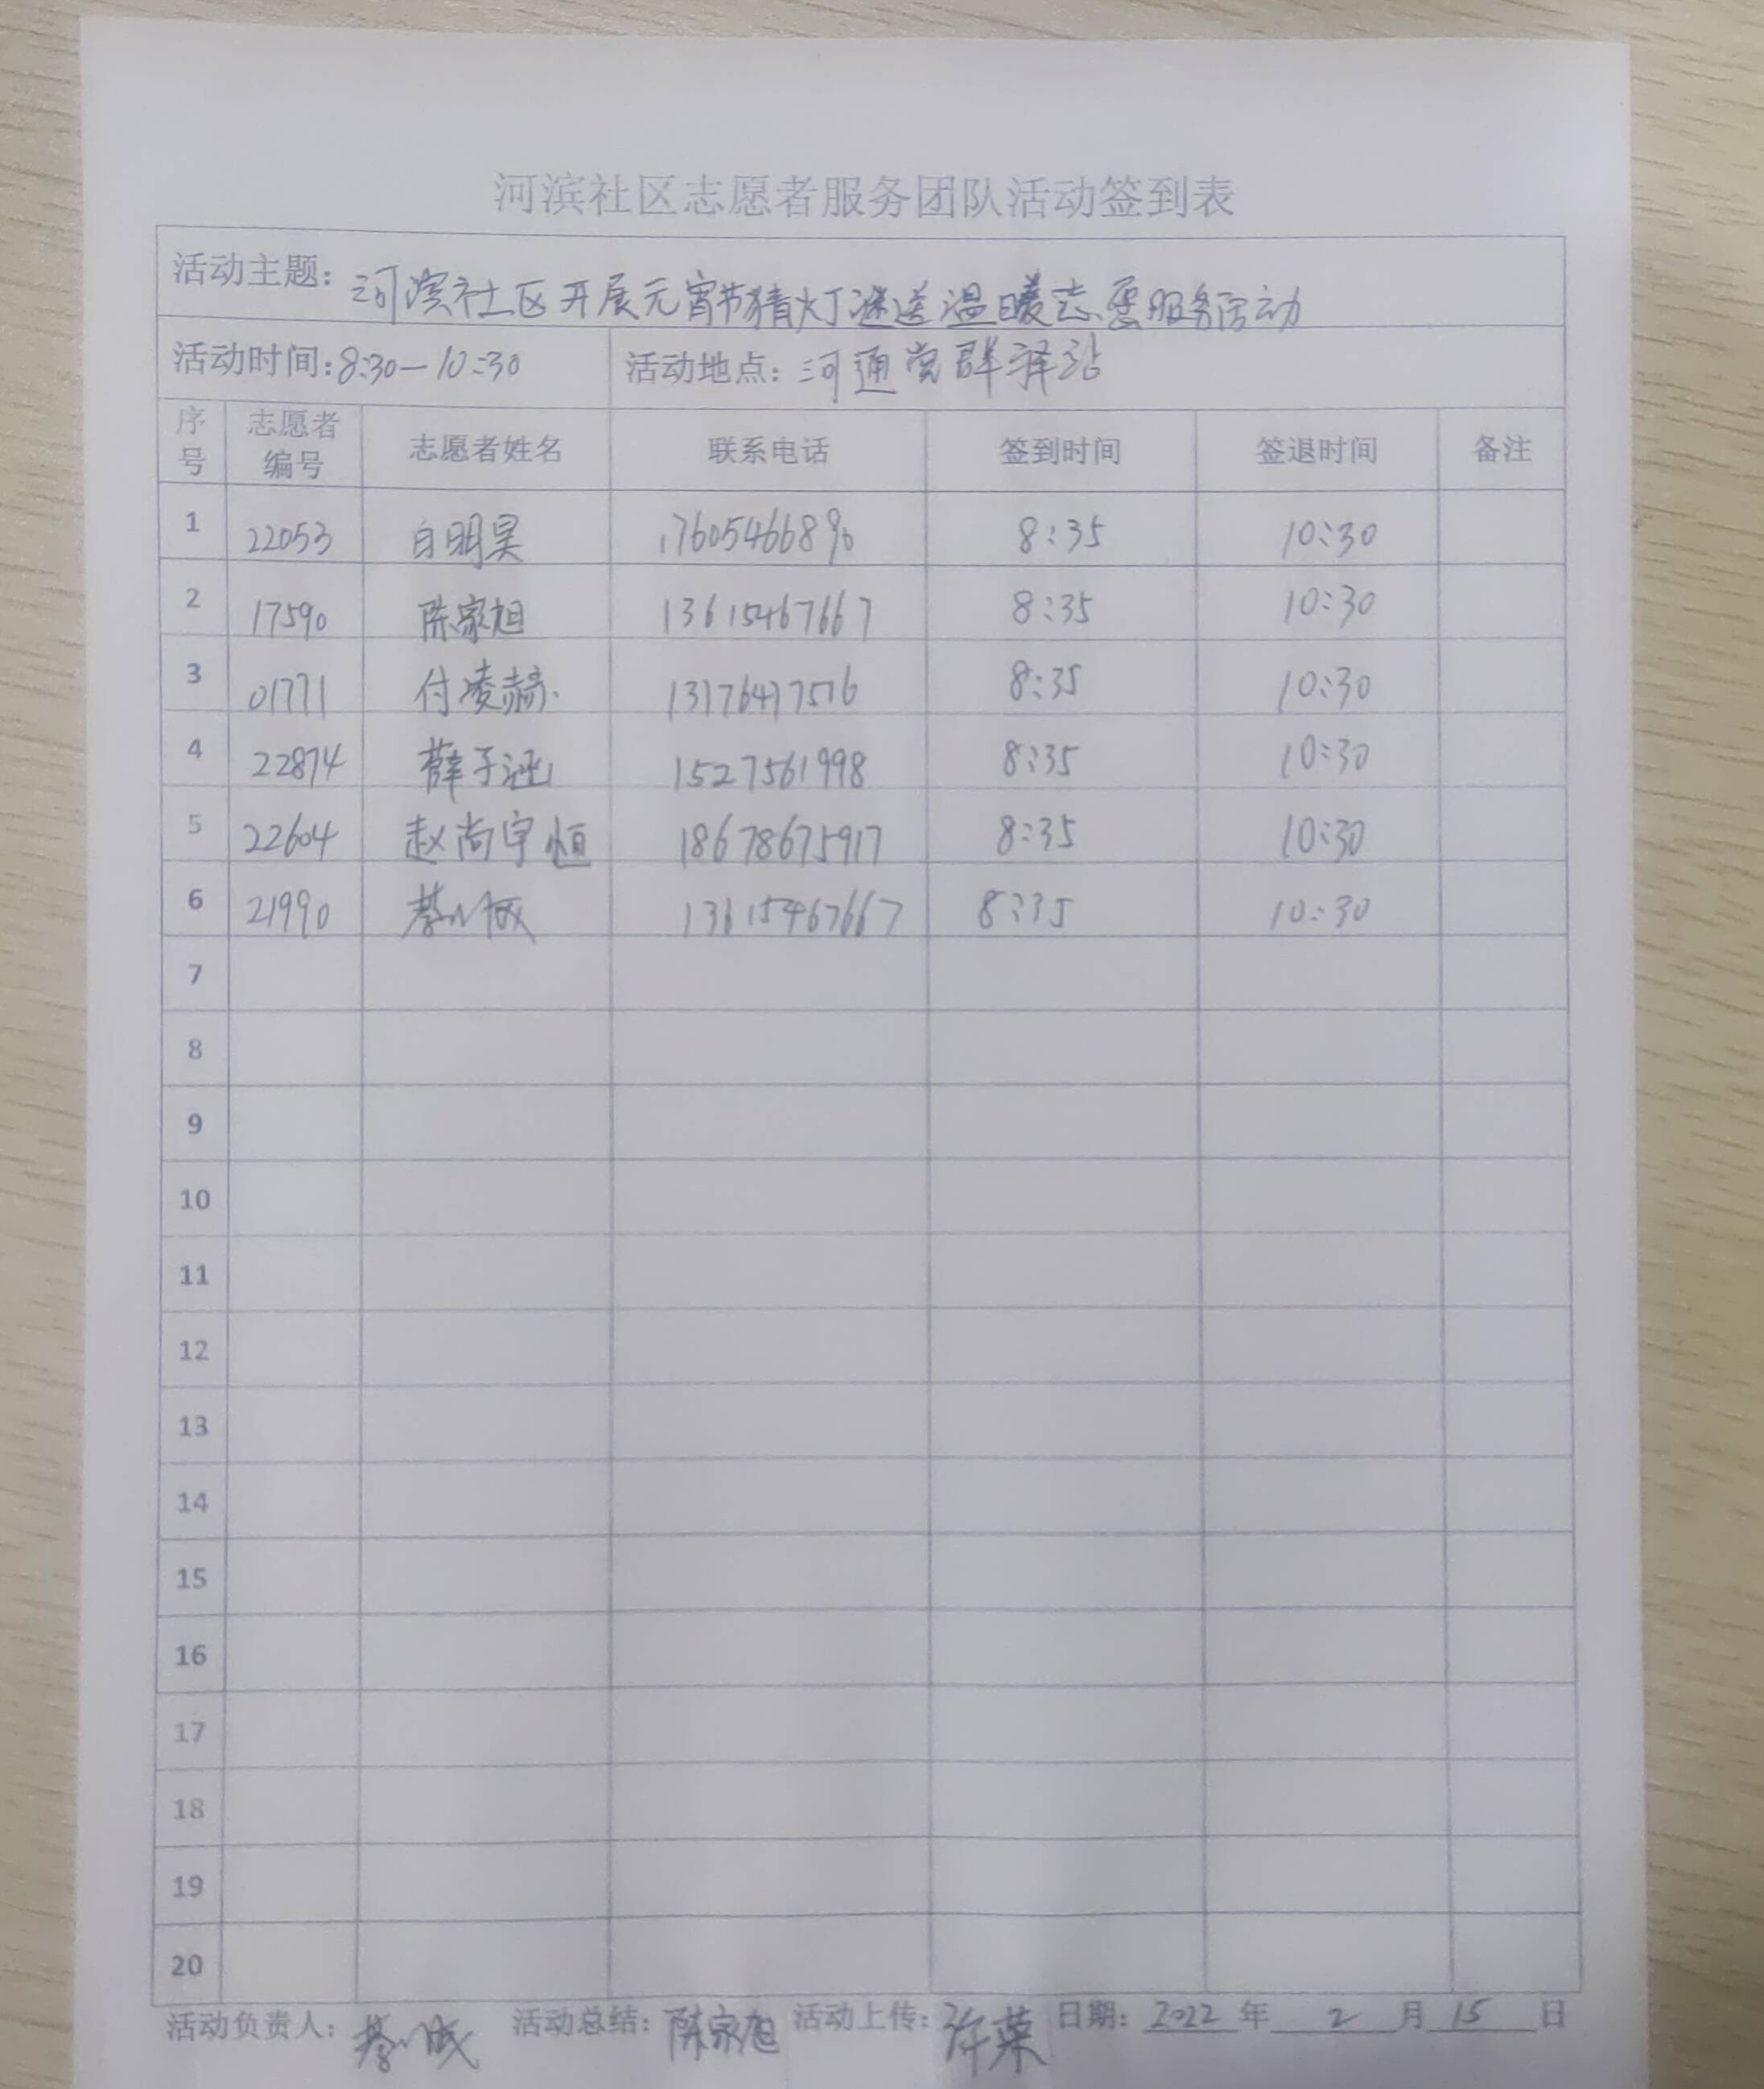 河滨社区志愿者服务团队活动签到表
活动主题: 河滨社区开展元宵节猜灯谜送温暖志愿服务活动
活动时间: 8:30—10:30 活动地点: 河通党群驿站
序号 志愿者编号 志愿者姓名 联系电话 签到时间 签退时间 备注
1 22053 白明昊 17605466896 8:35 10:30
2 17590 陈家旭 13615467667 8:35 10:30
3 01771 付凌赫 13176417516 8:35 10:30
4 22874 薛子涵 1527561998 8:35 10:30
5 22604 赵尚宇恒 18678675917 8:35 10:30
6 21990 13615467667 8:35 10:30
7
8
9
10
11
12
13
14
15
16
17
18
19
20
活动负责人: 活动总结: 陈家旭 活动上传: 许荣 日期: 2022 年 2 月 15 日